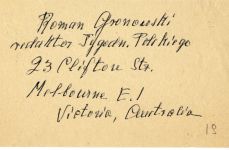 Roman Gronowski
redaktor Tygodn. Polskiego
23 Clifton Str.
Melbourne E.1
Victoria, Australia
19